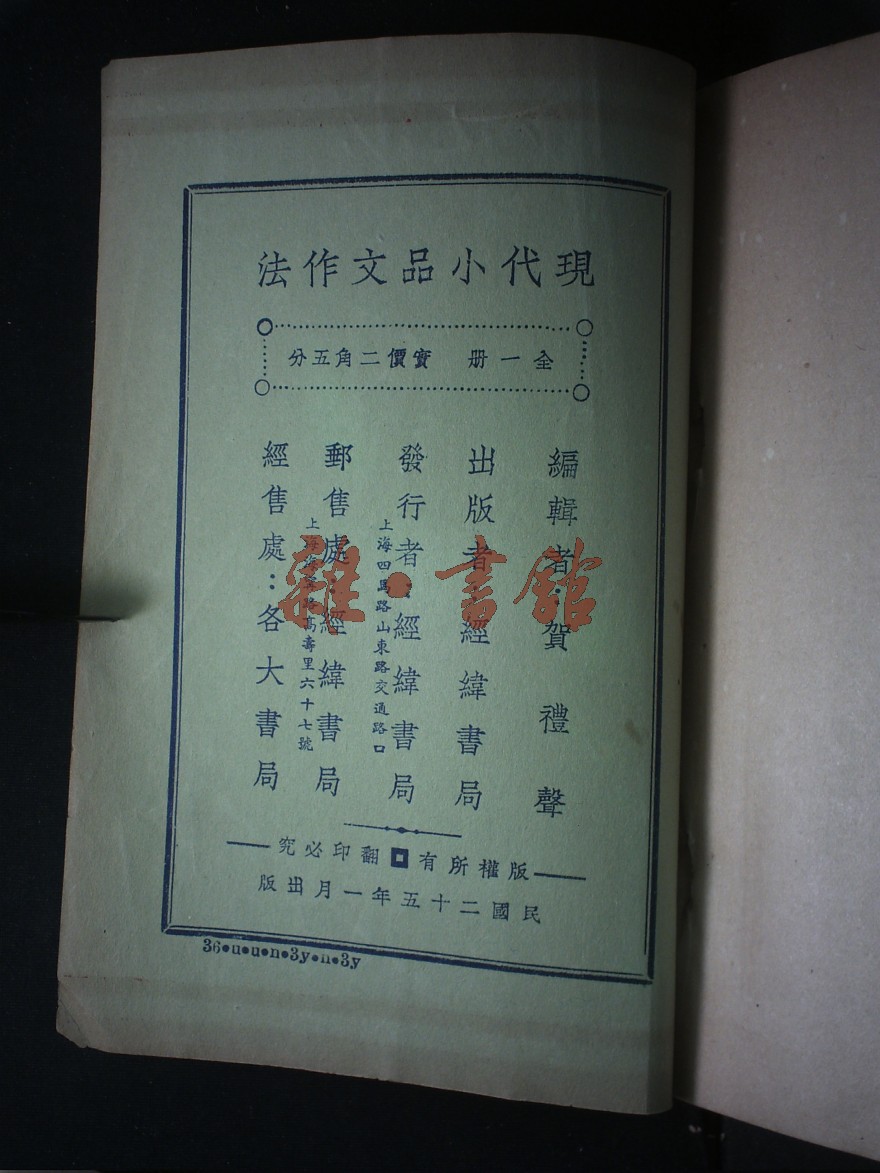 現代小品文作法
全一册 實價二角五分
編輯者：賀禮聲
出版者：經緯書局
發行者：經緯書局
上海四馬路山東路交通路口
郵售處：經緯書局
高壽里六十七號
經售處：各大書局
版權所有翻印必究
民國二十五年一月出版
36•u•u•n•3y•n•3y
雜•書館